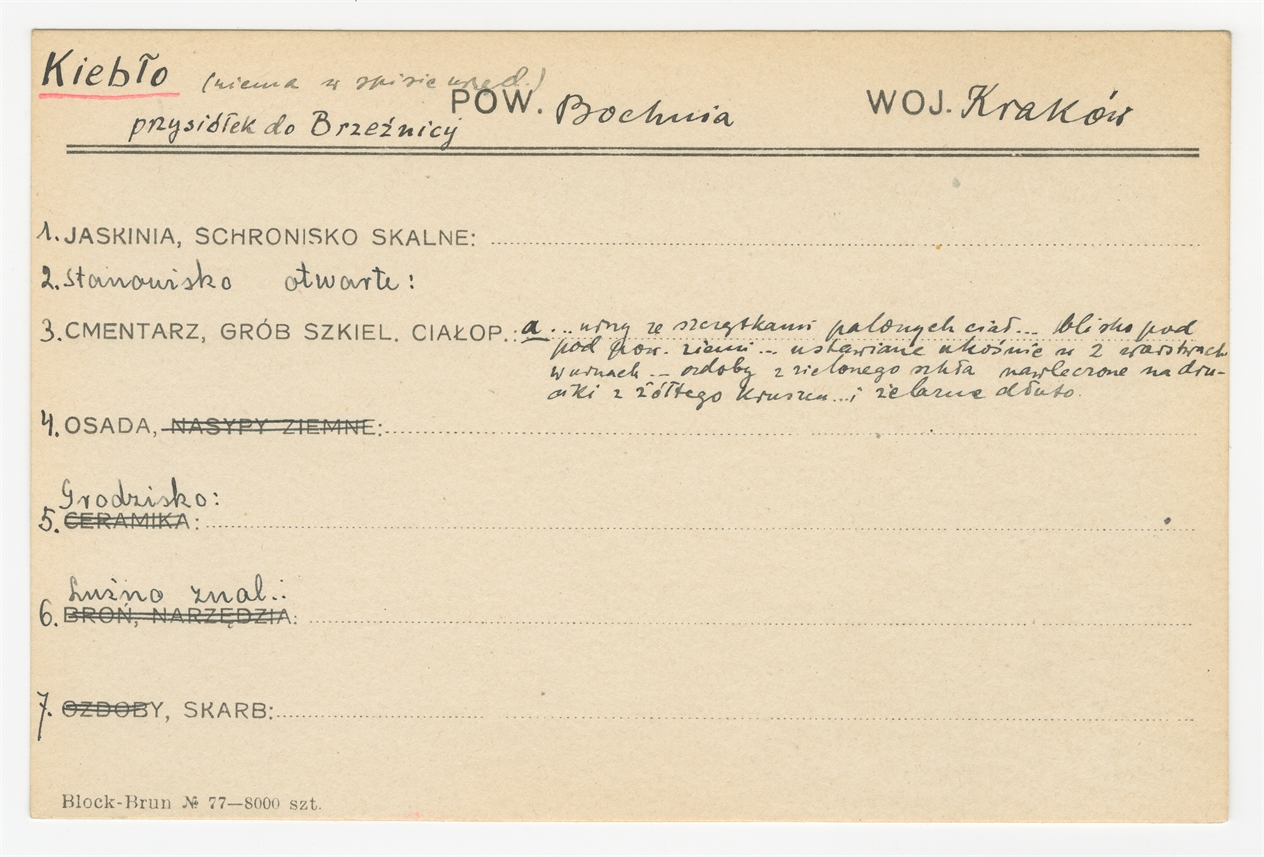 Kiebło (niema w spisie urzęd.)
POW. Bochnia WOJ. Kraków
przysiółek do Brzeźnicy
1. JASKINIA, SCHRONISKO SKALNE:
2. Stanowisko otwarte:
3. CMENTARZ, GRÓB SZKIEL. CIAŁOP.: a... urny ze szczątkami palonych ciał... blisko pod
pod pow. ziemi... ustawiane ukośnie w 2 warstwach
w urnach... ozdoby z zielonego szkła nawleczone na dru-
ciki z żółtego kruszcu... i żelazne dłuto.
4. OSADA, NASYPY ZIEMNE:
Grodzisko:
5. CERAMIKA:
Luźno znal.:
6. BROŃ, NARZĘDZIA:
7. OZDOBY, SKARB:
Block-Brun № 77—8000 szt.